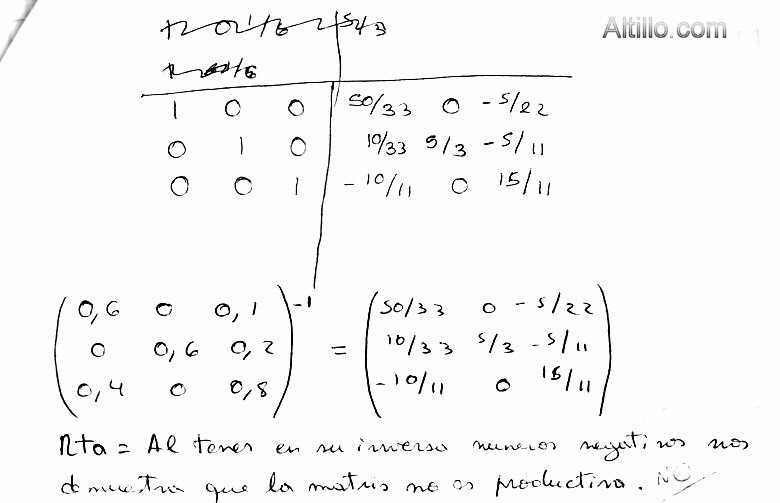 Altillo.com
5/3
1 0 0 50/33 0 -5/22
0 1 0 10/33 5/3 -5/11
0 0 1 -10/11 0 15/11
(0,6 0 0,1)-1 (50/33 0 -5/22)
(0 0,6 0,2) = (10/33 5/3 -5/11)
(0,4 0 0,8) (-10/11 0 15/11)
Rta = Al tener en su inversa numeros negativos nos
demuestra que la matris no es productiva. NO